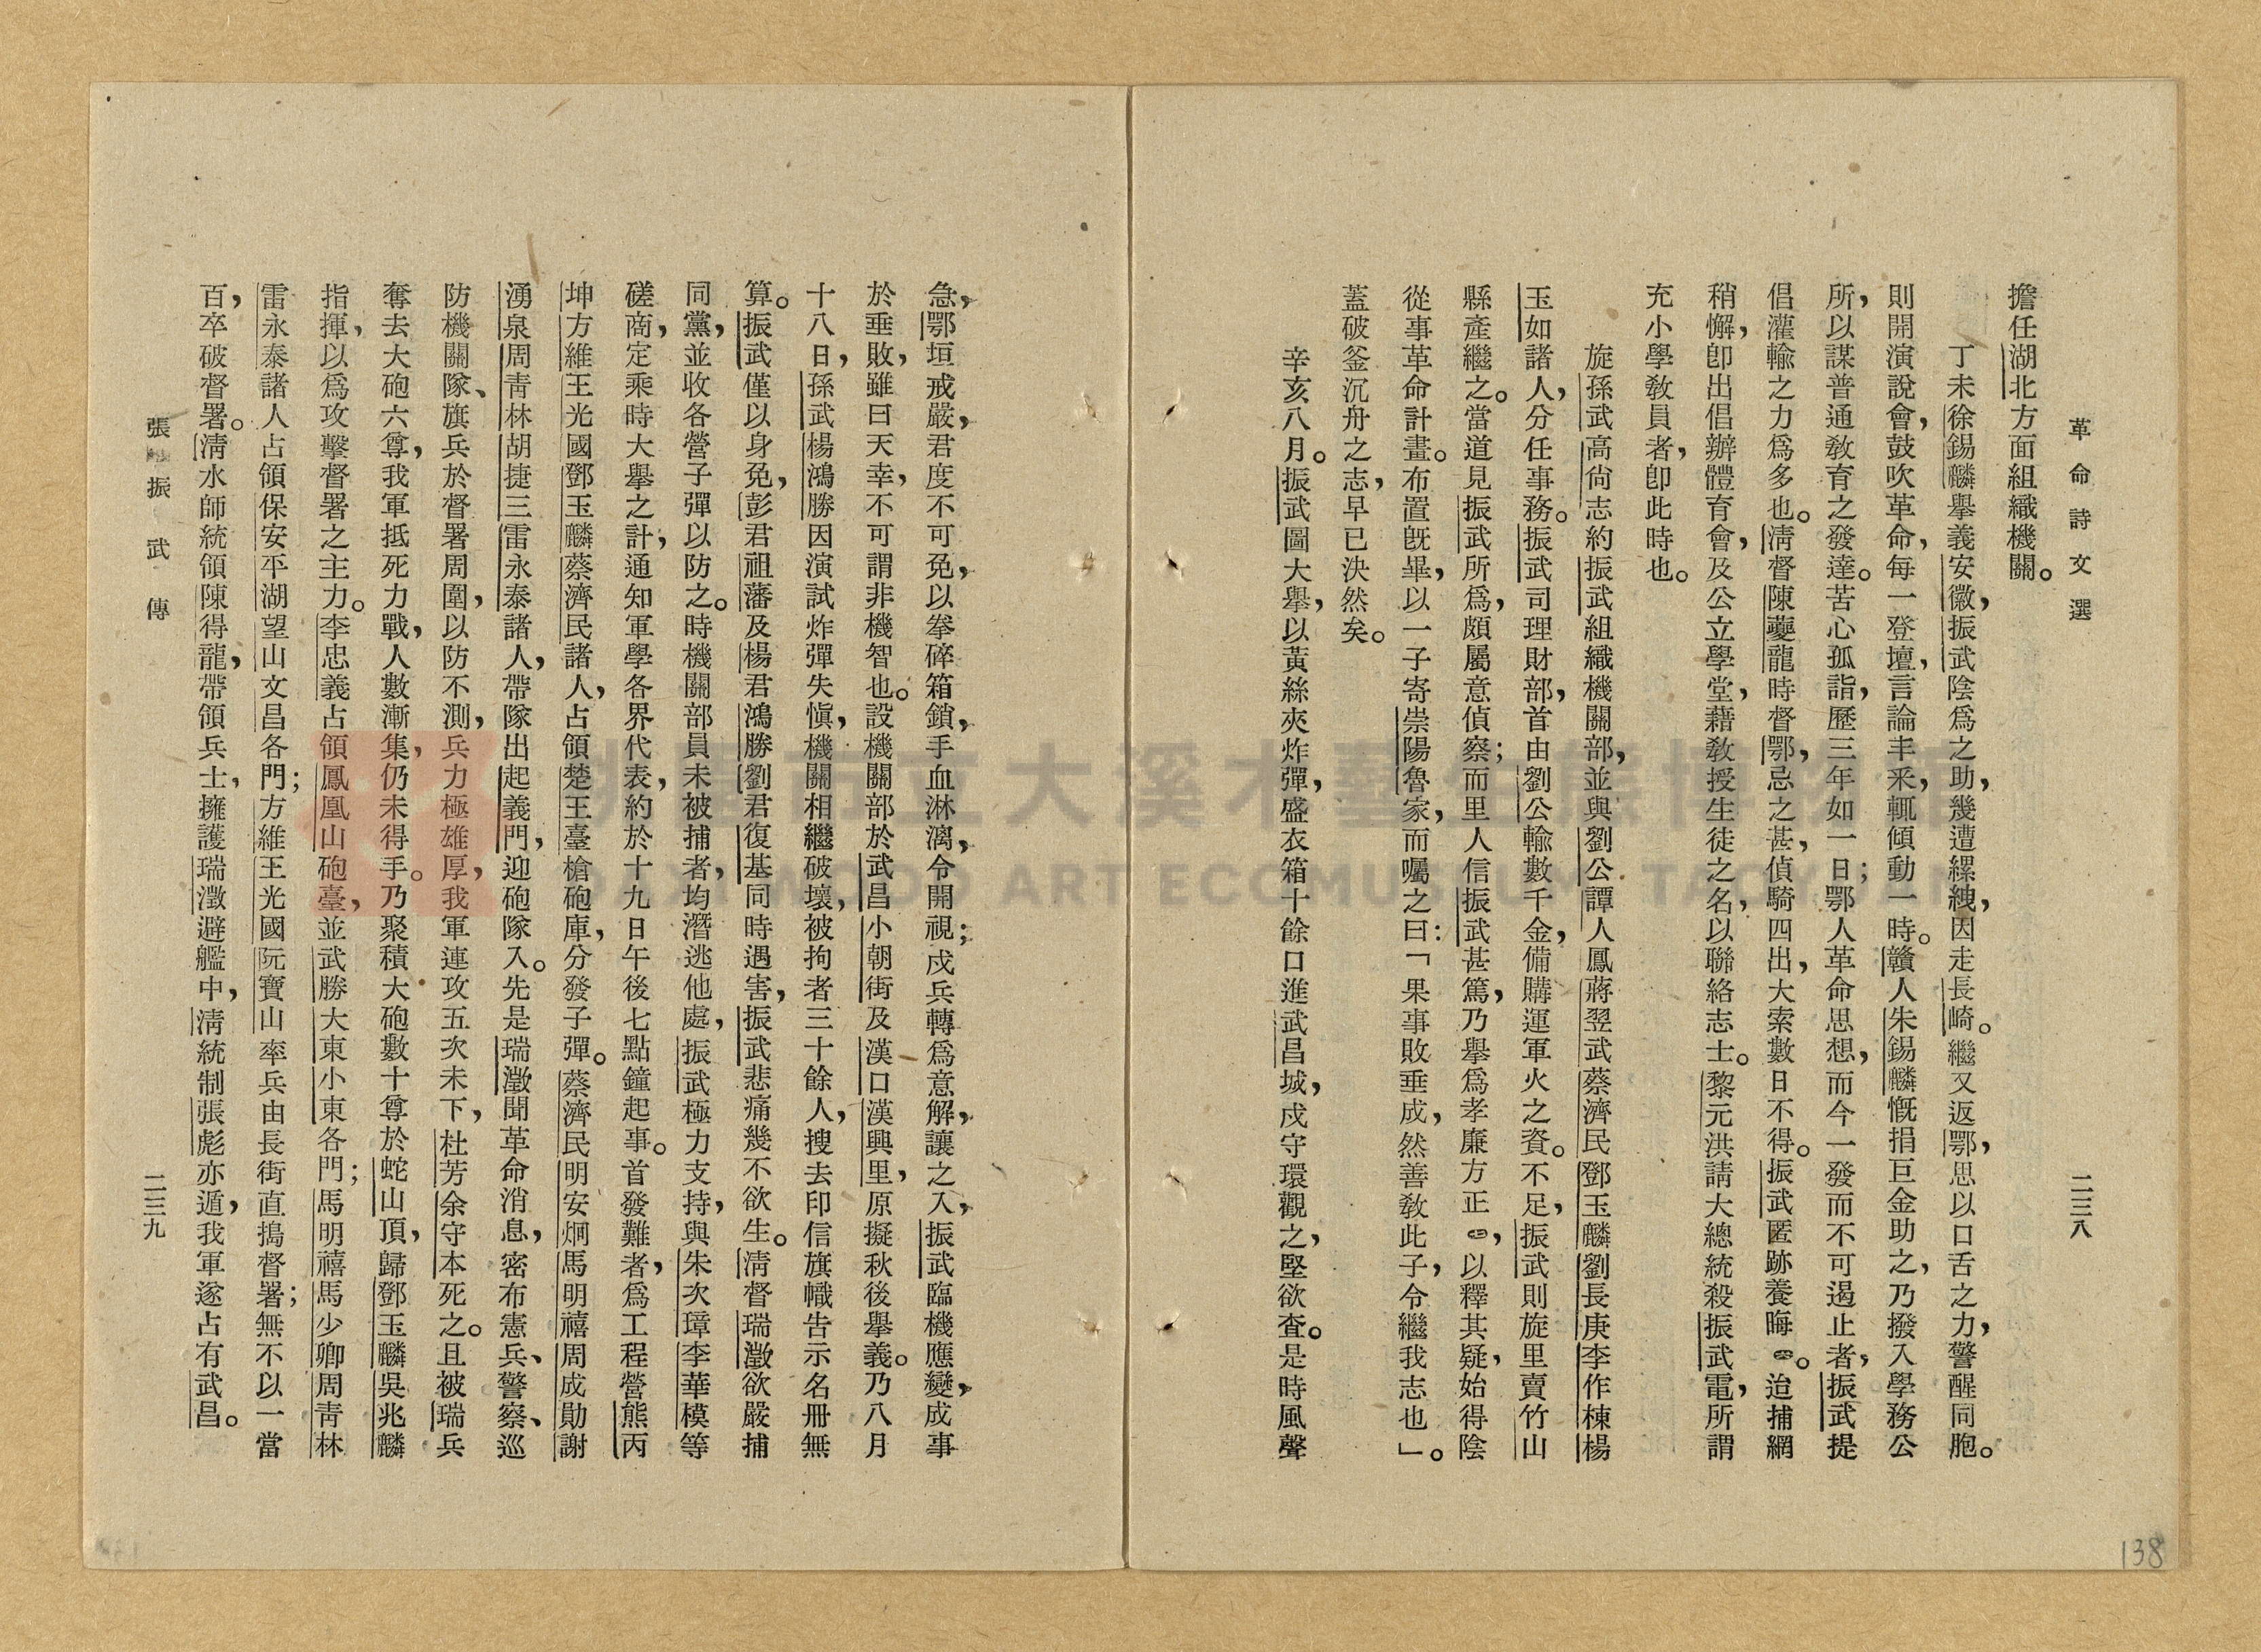 革命詩文選
二三八
擔任湖北方面組織機關。
丁未徐錫麟擧義安徽，振武陰爲之助，幾遭縲絏，因走長崎。繼又返鄂，思以口舌之力，警醒同胞。
則開演說會，鼓吹革命，每一登壇，言論丰釆，輒傾動一時。贛人朱錫麟慨捐巨金助之，乃撥入學務公
所，以謀普通敎育之發達。苦心孤詣，歷三年如一日；鄂人革命思想，而今一發而不可遏止者，振武提
倡灌輸之力爲多也。淸督陳夔龍時督鄂，忌之甚，偵騎四出，大索數日不得。振武匿跡養晦㊀。迨捕網
稍懈，卽出倡辦體育會，及公立學堂，藉敎授生徒之名，以聯絡志士。黎元洪請大總統殺振武電，所謂
充小學敎員者，卽此時也。
旋孫武高尙志約振武組織機關部，並與劉公譚人鳳蔣翌武蔡濟民鄧玉麟劉長庚李作棟楊
玉如諸人，分任事務。振武司理財部，首由劉公輸數千金，備購運軍火之資。不足，振武則旋里賣竹山
縣產繼之。當道見振武所爲，頗屬意偵察；而里人信振武甚篤，乃擧爲孝廉方正㊀，以釋其疑，始得陰
從事革命計畫。布置旣畢，以一子寄崇陽魯家，而囑之曰：「果事敗垂成，然善敎此子，令繼我志也」。
蓋破釜沉舟之志，早已決然矣。
辛亥八月。振武圖大擧，以黃絲夾炸彈，盛衣箱十餘口進武昌城，戍守環觀之，堅欲査。是時風聲
急，鄂垣戒嚴，君度不可免，以拳碎箱鎖，手血淋漓，令開視；戍兵轉爲意解，讓之入，振武臨機應變，成事
於垂敗，雖曰天幸，不可謂非機智也。設機關部於武昌小朝街及漢口漢興里，原擬秋後擧義。乃八月
十八日，孫武楊鴻勝因演試炸彈失愼，機關相繼破壞，被拘者三十餘人，搜去印信旗幟告示名冊無
算。振武僅以身免，彭君祖藩及楊君鴻勝劉君復基同時遇害，振武悲痛幾不欲生。淸督瑞澂欲嚴捕
同黨，並收各營子彈以防之。時機關部員未被捕者，均潛逃他處，振武極力支持，與朱次璋李華模等
磋商，定乘時大擧之計，通知軍學各界代表，約於十九日午後七點鐘起事。首發難者，爲工程營熊丙
坤方維王光國鄧玉麟蔡濟民諸人，占領楚王臺槍砲庫，分發子彈。蔡濟民明安烱馬明禧周成勛謝
湧泉周靑林胡捷三雷永泰諸人，帶隊出起義門，迎砲隊入。先是瑞澂聞革命消息，密布憲兵、警察、巡
防機關隊、旗兵於督署周圍，以防不測，兵力極雄厚，我軍連攻五次未下，杜芳余守本死之。且被瑞兵
奪去大砲六尊，我軍抵死力戰，人數漸集，仍未得手。乃聚積大砲數十尊於蛇山頂，歸鄧玉麟吳兆麟
指揮，以爲攻擊督署之主力。李忠義占領鳳凰山砲臺，並武勝大東小東各門；馬明禧馬少卿周靑林
雷永泰諸人占領保安平湖望山文昌各門；方維王光國阮寶山率兵由長街直搗督署；無不以一當
百，卒破督署。淸水師統領陳得龍，帶領兵士，擁護瑞澂避艦中，淸統制張彪亦遁，我軍遂占有武昌。
張振武傳
二三九
138